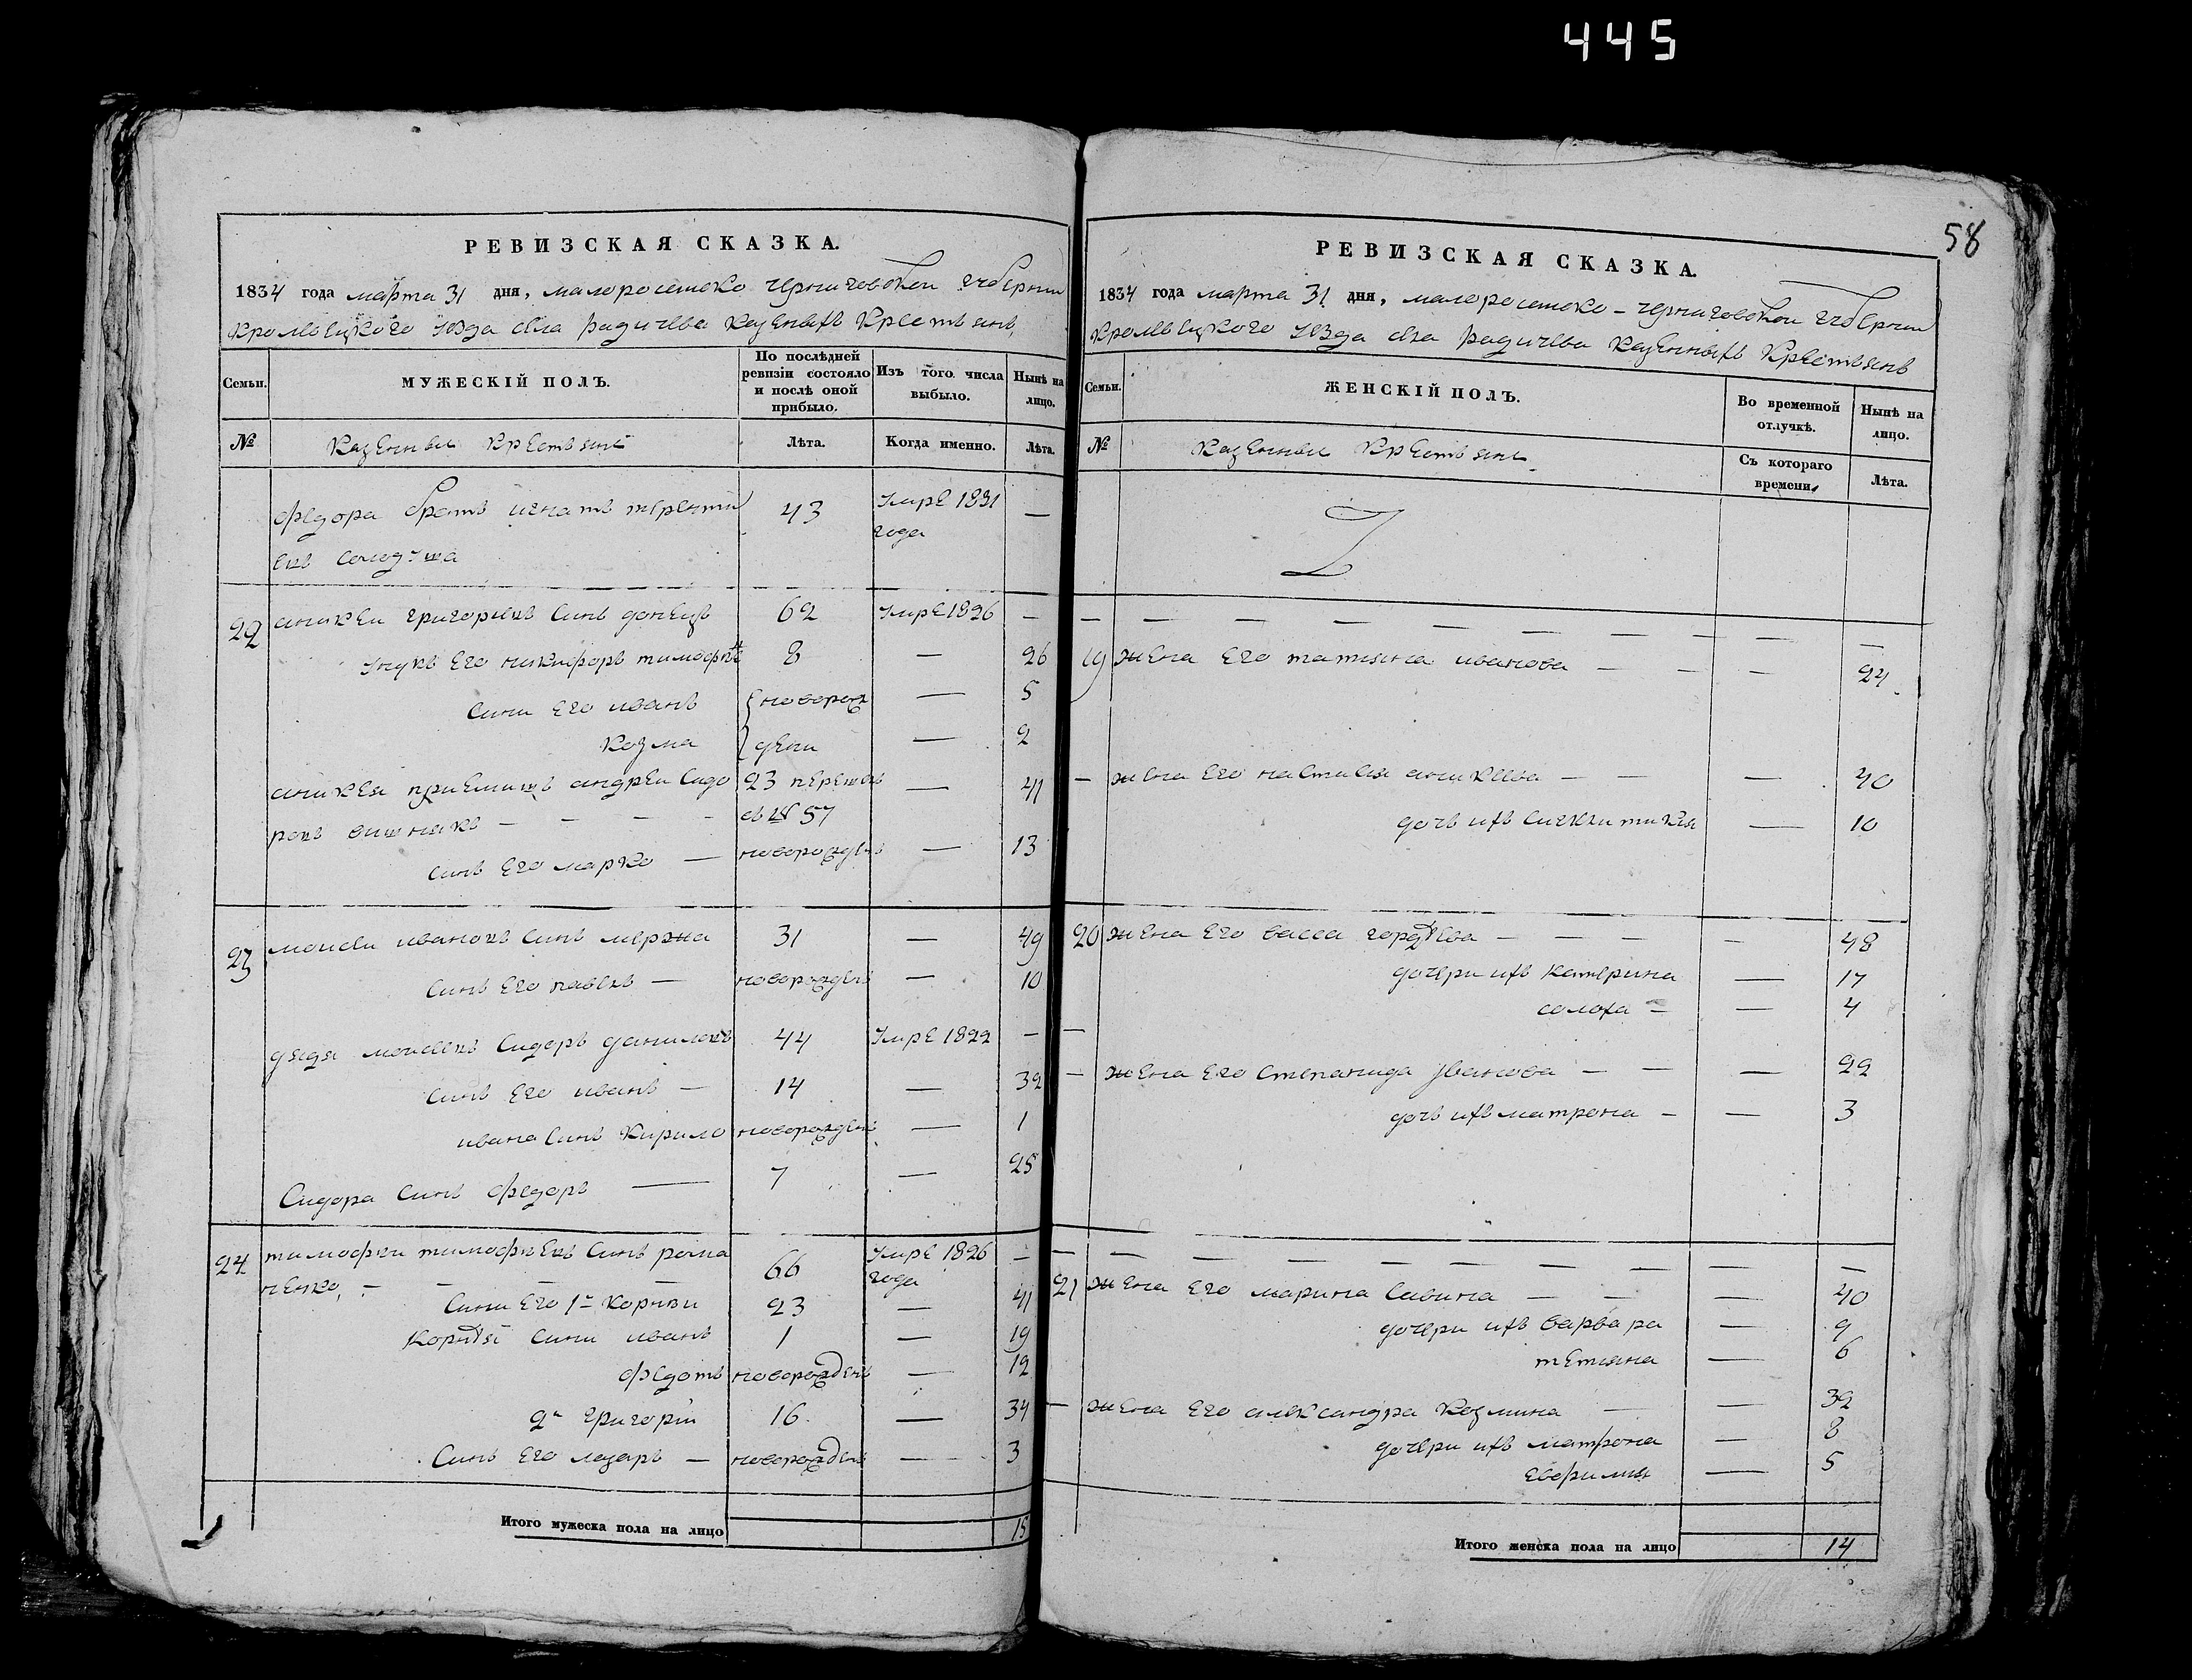 445
РЕВИЗСКАЯ СКАЗКА.
1834 года марта 31 дня, малоросийско черниговской губернии
Кролевецкого уезда села радичева казеныхъ Крестьянъ,
Семьи.
МУЖЕСКІЙ ПОЛЪ.
По послѣдней ревизіи состояло и послѣ оной прибыло.
Изъ того числа выбыло.
Нынѣ на лицо.
№ Казенныи Крестьяни Лѣта. Когда именно. Лѣта.
федора братъ игнатъ теренти 43 Умре 1831 —
года
22 аникеи григориевъ Синъ донецъ 62 Умре 1826 —
унукъ Его никифоръ тимофѣ 8 — 26
Сини Его иванъ новорож — 5
козма дени — 2
аникея приемишъ андреи Сидо 23 — 41
ровъ вишнякъ — — — — № 57
Синъ Его марко — новорожденъ — 13
23 моисеи ивановъ Синъ мержа 31 — 49
Синъ Его павелъ — новорожденъ — 10
дядя моисеевъ Сидоръ даниловъ 44 Умре 1822 —
Синъ Его иванъ — 14 — 32
ивана Синъ Кирило новорожденъ — 1
Сидора Синъ федоръ — 7 — 25
24 тимофеи тимофиевъ Синъ рома 66 Умре 1826 —
ненко, — — — — года
Сини Его 1й Корнѣи 23 — 41
Корнѣя Сини иванъ 1 — 19
федотъ новорожденъ — 12
2й григорій 16 — 34
Синъ Его лазарь — новорожденъ — 3
Итого мужеска пола на лицо 15
58
РЕВИЗСКАЯ СКАЗКА.
1834 года марта 31 дня, малоросийско — черниговской губернии
Кролевецкого уезда села радичева казенныхъ Крестьянъ
Семьи.
ЖЕНСКІЙ ПОЛЪ.
Во временной отлучкѣ.
Нынѣ на лицо.
№ Казенныи Крестьяни Съ котораго времени. Лѣта.
— — — — — — — — — —
19 жена Его татияна иванова — — — 24
— жена Его настасия аникеева — — — 40
дочь ихъ — 10
20 жена Его васса гордѣева — — — — 48
дочери ихъ катерина — 17
солоха — — 4
—
— жена Его Степанида иванова — — — 22
дочь ихъ матрона — — 3
— — — — — — — — — —
21 жена Его марина Савина — — — 40
дочери ихъ варвара — 9
тетяна — 6
— жена Его александра козмина — — 32
дочери ихъ матрона — 8
— 5
Итого женска пола на лицо 14